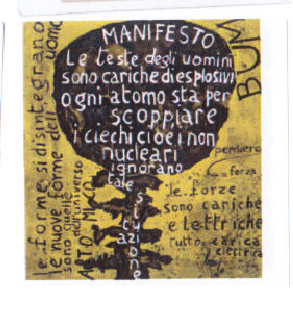 MANIFESTO
Le teste degli uomini
sono cariche di esplosivi
ogni atomo sta per
scoppiare
i ciechi cioè i non
nucleari
ignorano
tale
situazione
BUM
le forme si disintegrano
le nuove forme dell uomo
sono quelle
dell'universo
pensiero
forza
le forze
sono cariche
elettriche
tutto carica
elettrica